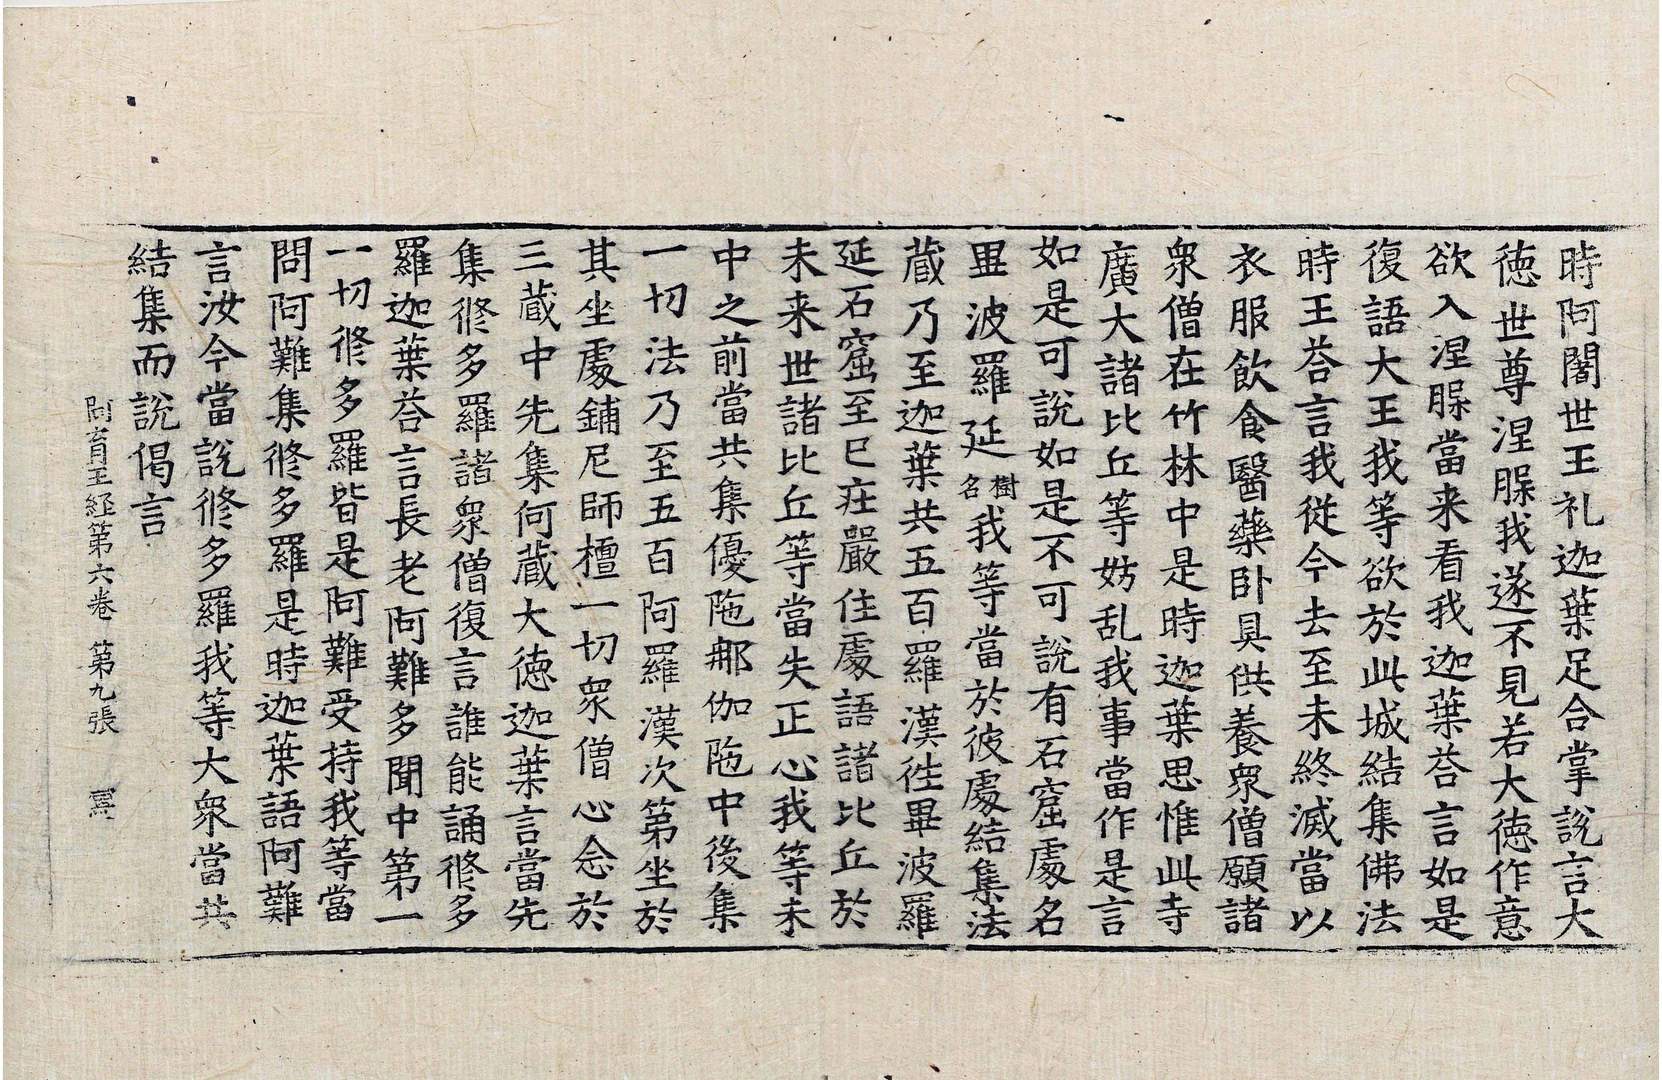 時阿闍世王礼迦葉足合掌說言大
徳世尊涅脲我遂不見若大徳作意
欲入涅脲當来看我迦葉荅言如是
復語大王我等欲於此城結集佛法
時王荅言我從今去至未終滅當以
衣服飲食醫藥卧具供養衆僧願諸
衆僧在竹林中是時迦葉思惟此寺
廣大諸比丘等妨乱我事當作是言
如是可說如是不可說有石窟處名
畢波羅延樹名我等當於彼處結集法
蔵乃至迦葉共五百羅漢徃畢波羅
延石窟至已庄嚴住處語諸比丘於
未来世諸比丘等當失正心我等未
中之前當共集優陁那伽陁中後集
一切法乃至五百阿羅漢次第坐於
其坐處鋪尼師檀一切衆僧心念於
三蔵中先集何蔵大徳迦葉言當先
集修多羅諸衆僧復言誰能誦修多
羅迦葉荅言長老阿難多聞中第一
一切修多羅皆是阿難受持我等當
問阿難集修多羅是時迦葉語阿難
言汝今當說修多羅我等大衆當共
結集而說偈言
阿育王経第六卷 第九張